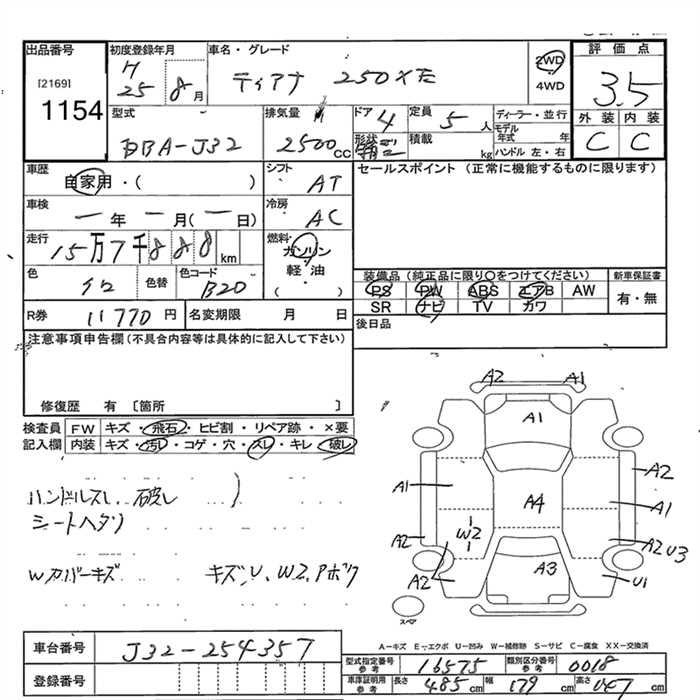 出品番号
[2169]
1154
初度登録年月
H
25 8月
車名・グレード
ティアナ 250XE
2WD
4WD
評価点
3.5
外装 内装
C C
型式
DBA-J32
排気量
2500cc
ドア
4
形状
定員
5人
積載
kg
ディーラー・並行
モデル年式 年
ハンドル 左・右
車歴
自家用・( )
シフト
AT
セールスポイント (正常に機能するものに限ります)
車検
一年一月(一日)
冷房
AC
走行
15万7千888km
燃料
ガソリン
軽・油
( )
色
色替
色コード
B20
装備品 (純正品に限り○をつけてください)
新車保証書
PS PW ABS エアB AW
有・無
SR ナビ TV カワ
R券
11770円
名変期限 月 日
後日品
注意事項申告欄(不具合内容等は具体的に記入して下さい)
修復歴 有 [箇所 ]
検査員記入欄
FW キズ・飛石・ヒビ割・リペア跡・×要
内装 キズ・汚れ・コゲ・穴・スレ・キレ・破レ
ハンドルスレ、破レ
シートヘタリ
Wカバーキズ
キズ、U、W2、Pホツ
A2 A1
A1
A2
A1
A4
A1
A2
W2
A2 U3
A3
A2
U1
スペア
車台番号
J32-254357
登録番号
A-キズ E-エクボ U-凹み W-補修跡 S-サビ C-腐食 XX-交換済
型式指定番号
参考
16575
類別区分番号
参考
0018
車庫証明用
参考
長さ 485cm
幅 179cm
高さ 147cm